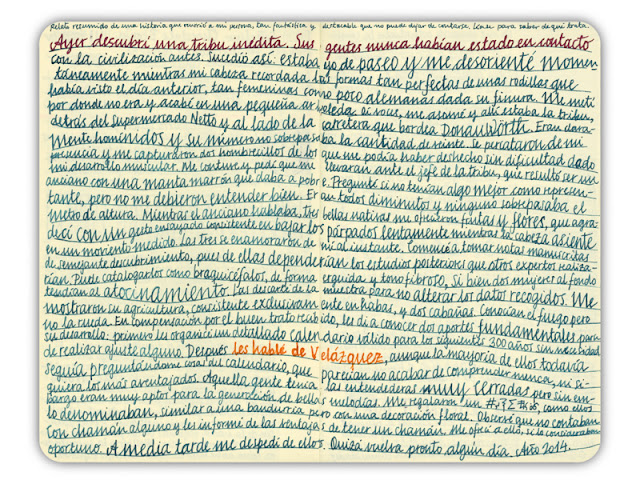 Relato resumido de una historia que ocurrió a mi persona, tan fantástica y destacable que no puede dejar de contarse. Léase para saber de qué trata.
Ayer descubrí una tribu inédita. Sus gentes nunca habían estado en contacto
con la civilización antes. Sucedió así: estaba yo de paseo y me desorienté momen-
táneamente mientras mi cabeza recordaba las formas tan perfectas de unas rodillas que
había visto el día anterior, tan femeninas como poco alemanas dada su finura. Me metí
por donde no era y acabé en una pequeña arboleda. Oí voces, me asomé y allí estaba la tribu,
detrás del supermercado Netto y al lado de la carretera que bordea Donauwörth. Eran clara-
mente homínidos y su número no sobrepasaba la cantidad de veinte. Se percataron de mi
presencia y me capturaron dos hombrecillos de los que me podía haber deshecho sin dificultad dado
mi desarrollo muscular. Me contuve y pedí que me llevaran ante el jefe de la tribu, que resultó ser un
anciano con una manta marrón que daba a pobre. Pregunté si no tenían algo mejor como represen-
tante, pero no me debieron entender bien. Eran todos diminutos y ninguno sobrepasaba el
metro de altura. Mientras el anciano hablaba, tres bellas nativas me ofrecieron frutas y flores, que agra-
decí con un gesto ensayado consistente en bajar los párpados lentamente mientras la cabeza asiente
en un movimiento medido. Las tres se enamoraron de mí al instante. Comencé a tomar notas manuscritas
de semejante descubrimiento, pues de ellas dependerían los estudios posteriores que otros expertos realiza-
rían. Pude catalogarlos como braquicéfalos, de forma erguida y tono fibroso. Si bien dos mujeres al fondo
tendían al atocinamiento. Las descarté de la muestra para no alterar los datos recogidos. Me
mostraron su agricultura, consistente exclusivamente en habas, y dos cabañas. Conocían el fuego pero
no la rueda. En compensación por el buen trato recibido, les di a conocer dos aportes fundamentales para
su desarrollo: primero les organicé un detallado calendario sólido para los siguientes 300 años sin necesidad
de realizar ajuste alguno. Después les hablé de Velázquez, aunque la mayoría de ellos todavía
seguía preguntándome cosas del calendario, que parecían no acabar de comprender nunca, ni si-
quiera los más aventajados. Aquella gente tenía las entendederas muy cerradas pero sin em-
bargo eran muy aptos para la generación de bellas melodías. Me regalaron un, como ellos
lo denominaban, similar a una bandurria pero con una decoración floral. Observé que no contaban
con chamán alguno y les informé de las ventajas de tener un chamán. Me ofrecí a ello, si lo consideraban
oportuno. A media tarde me despedí de ellos. Quizá vuelva pronto algún día. Año 2014.